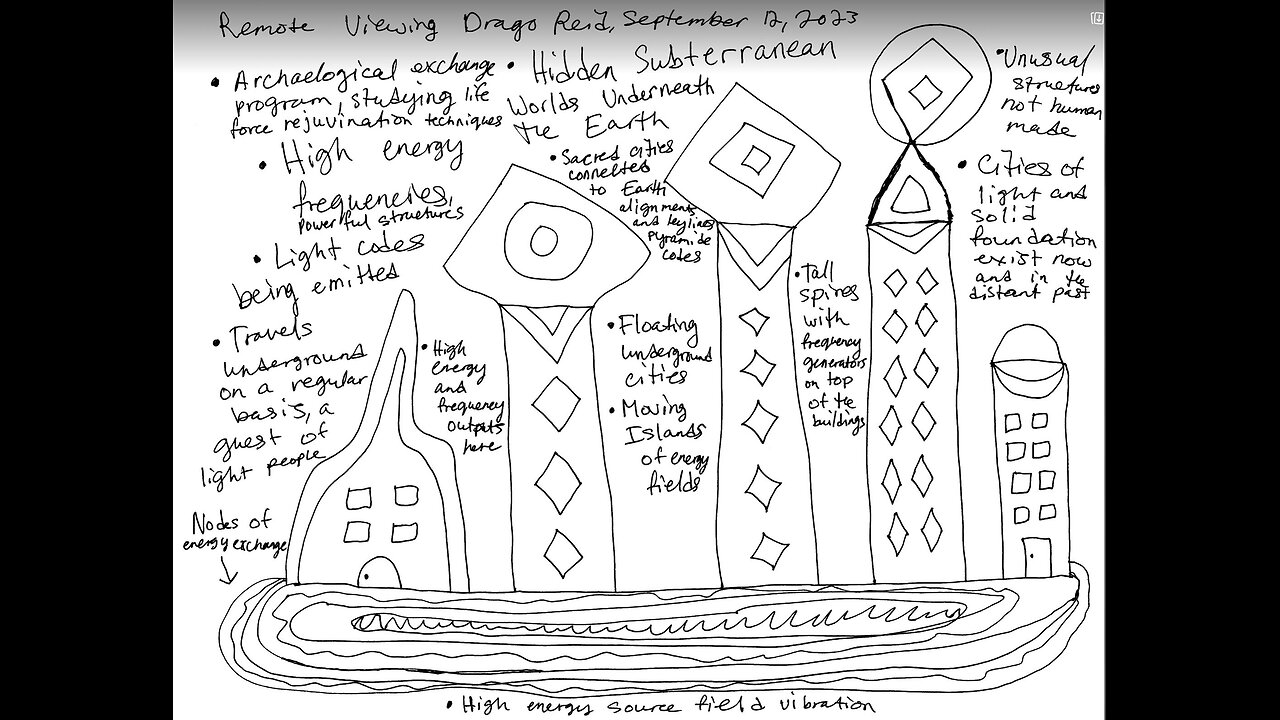 Remote Viewing Drago Reid, September 12, 2023
• Archaelogical exchange
program, studying life
force rejuvination techniques
• High energy
frequencies,
powerful structures
• Light codes
being emitted
• Travels
underground
on a regular
basis, a
guest of
light people
Nodes of
energy exchange
• High
energy
and
frequency
outputs
here
• Hidden Subterranean
Worlds Underneath
the Earth
• Sacred cities
connected
to Earth
alignments
and leylines
pyramide
codes
• Floating
underground
cities
• Moving
Islands
of energy
fields
• Tall
spires
with
frequency
generators
on top
of the
buildings
• Unusual
structures
not human
made
• Cities of
light and
solid
foundation
exist now
and in the
distant past
• High energy source field vibration